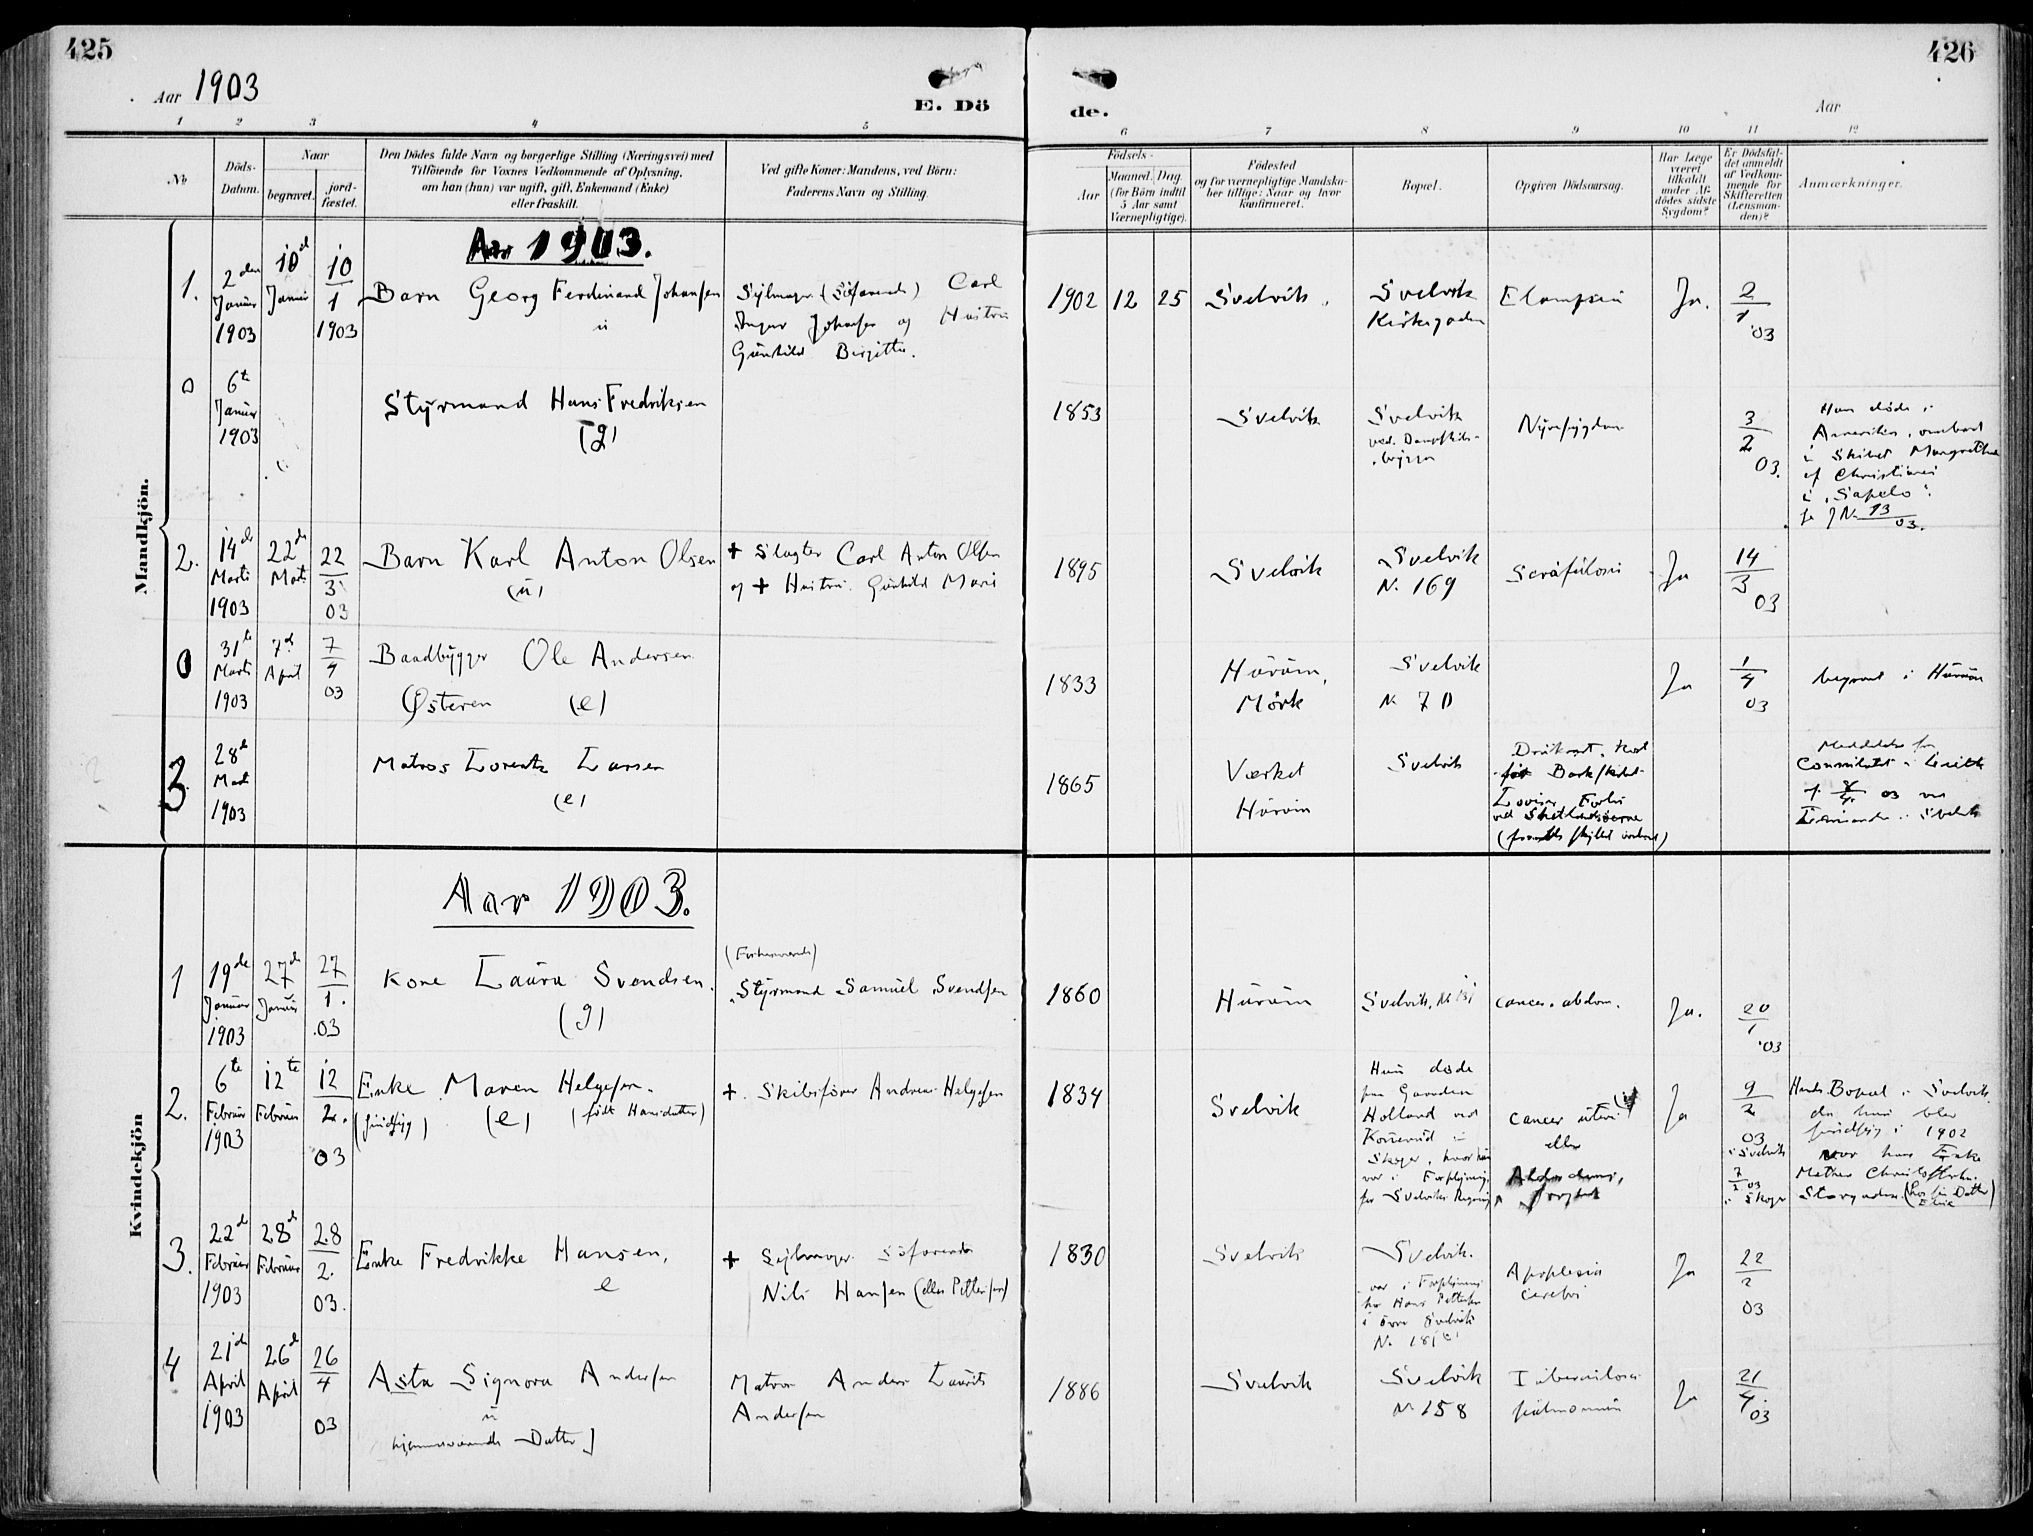 425
426
Aar 1903
E. Dö
de.
Aar
1 2 3 4 5 6 7 8 9 10 11 12
No
Döds-
Datum.
Naar
begravet.
jord-
fæstet.
Den Dödes fulde Navn og borgerlige Stilling (Næringsvei) med
Tilföiende for Voxnes Vedkommende af Oplysning,
om han (hun) var ugift, gift, Enkemand (Enke)
eller fraskilt.
Ved gifte Koner: Mandens, ved Börn:
Faderens Navn og Stilling.
Födsels-
Aar
Maaned. Dag.
(for Börn indtil
5 Aar samt
Værnepligtige).
Födested
og for værnepligtige Mandska-
ber tillige: Naar og hvor
konfirmeret.
Bopæl.
Opgiven Dödsaarsag.
Har Læge
været
tilkaldt
under Af-
dödes sidste
Sygdom?
Er Dödsfal-
det anmeldt
af Vedkom-
mende for
Skifteretten
(Lensman-
den)?
Anmærkninger.
Mandkjön.
Aar 1903.
1.
2den
Januar
1903
10d
Januar
10
1
1903
Barn Georg Ferdinand Johansen
u
Sejlmager (Söfarende) Carl
Johansen og Hustru
Gunhild Birgitte.
1902 12 25
Svelvik.
Svelvik
Kirkegaden
Eclampsia
Ja.
2
1
'03
0
6te
Januar
1903
Styrmand Hans Fredriksen
(g)
1853
Svelvik
Svelvik
ved Dampskibs-
bryggen
Nyresygdom
3
2
03.
Han döde i
Amerika, ombord
i Skibet Margrethe
af Christiania
i "Sapelo".
se J No 13
03.
2.
14de
Marts
1903
22de
Marts
22
3
03
Barn Karl Anton Olsen
(u)
+ Slagter Carl Anton Olsen
og + Hustru Gunhild Marie
1895
Svelvik
Svelvik
N. 169
Scrofulosis
Ja
14
3
03
0
31te
Marts
1903
7d
April
7
4
03
Baadbygger Ole Andersen
Østeren (e)
1833
Hurum,
Mörk
Svelvik
N. 70
Ja
1
4
03
begravet i Hurum
3
28de
Marts
1903
Matros Lorentz Larsen
(e)
1865
Værket
Hurum
Svelvik
Druknet,
Barkskibet
Forlis
ved Shetlandsöerne
Meddelelse fra
Consulatet i Leith
03
Svelvik
Kvindekjön
Aar 1903.
1
19de
Januar
1903
27de
Januar
27
1.
.03
Kone Laura Svendsen.
(g)
(Forhenværende)
Styrmand Samuel Svendsen
1860
Hurum
Svelvik, N.
cancer. abdom.
Ja.
20
1
'03
2.
6te
Februar
1903
12te
Februar
12
2.
03
Enke Maren Helgesen.
(sindssyg) (e) (födt Hansdatter)
+ Skibsförer Andreas Helgesen
1834
Svelvik
Hun döde
paa Gaarden
Holland ved
Konerud i
Skoger, hvor hun
var i Forplejning
for Svelviks Regning
cancer uteri (?)
eller
Ja
9
2
03
i Svelvik
7
2 03
i Skoger
Hendes Bopæl i Svelvik,
da hun blev
sindssyg i 1902
var hos Enke
Mathea Christoffersen
Storgaden (hos sin Datter)
3.
22de
Februar
1903
28de
Februar
28
2.
03.
Enke Fredrikke Hansen,
e
+ Sejlmager Söfarende
Nils Hansen (eller Pettersen)
1830
Svelvik
Svelvik.
var i Forplejning
hos Hans Pettersen
i övre Svelvik
N. 181
Apoplexia
cerebri
Ja
22
2
03
4
21de
April
1903
26de
April
26
4
03
Asta Signora Andersen
u
hjemmeværende Datter]
Matros Anders Laurits
Andersen
1886
Svelvik
Svelvik
N. 158
Tuberculosis
pulmonum
Ja
21
4.
03